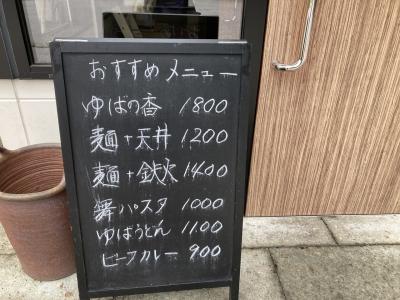 おすすめメニュー
ゆばの香 1800
麺+天丼 1200
麺+鉄火 1400
舞パスタ 1000
ゆばうどん 1100
ビーフカレー 900